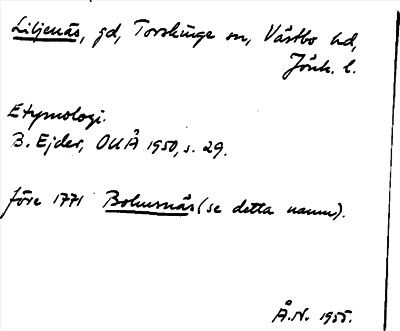 Liljenäs, gd, Torskinge sn, Västbo hd,
Jönk. l.
Etymologi.
B. Ejder, OUÅ 1950, s. 29.
före 1771 Bohusnäs (se detta namn).
Å.N. 1955.